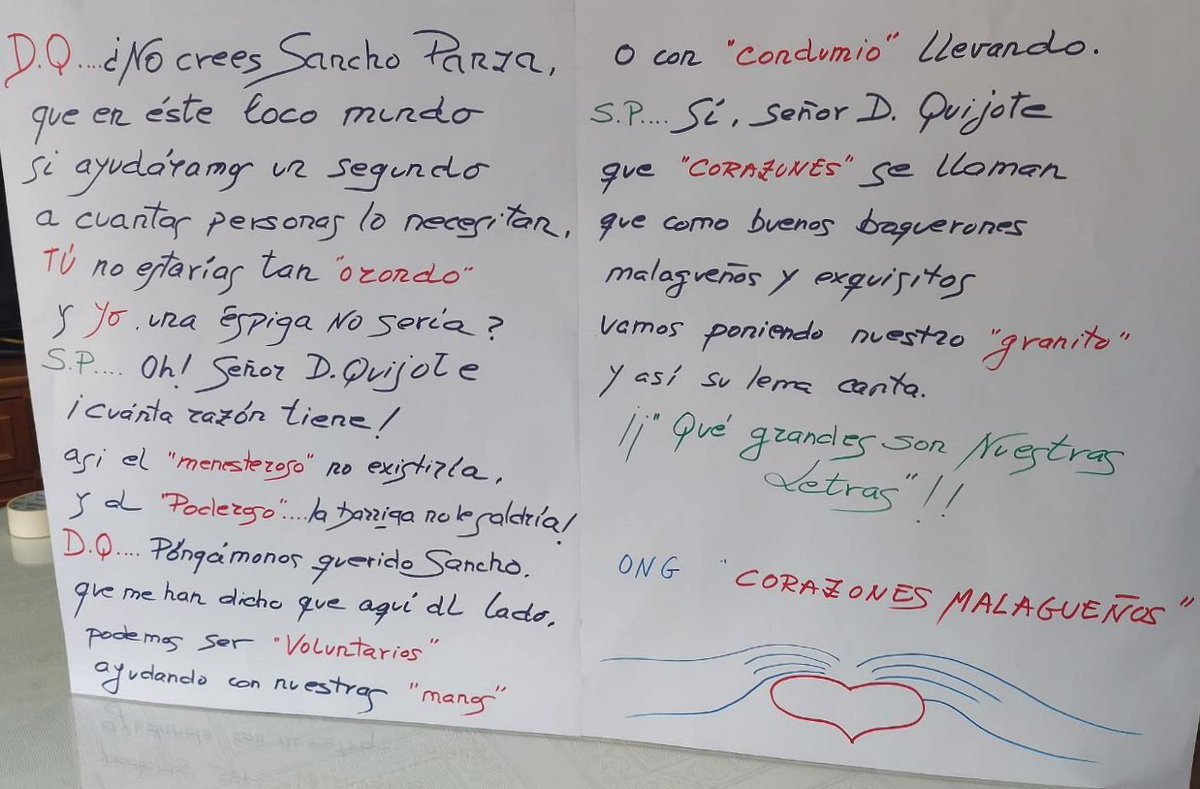 D.Q....¿No crees Sancho Panza,
que en éste loco mundo
si ayudáramos un segundo
a cuantas personas lo necesitan,
TÚ no estarías tan "orondo"
y yo, una Espiga No sería?
S.P.... Oh! Señor D. Quijote
¡cuánta razón tiene!
asi el "menesteroso" no existiría,
y al "Poderoso"....la barriga no le saldría!
D.Q.... Póngámonos querido Sancho,
que me han dicho que aquí al lado,
podemos ser "Voluntarios"
ayudando con nuestras "manos"
o con "condumio" llevando.
S.P.... Sí, señor D. Quijote
que "CORAZONES" se llaman
que como buenos baquerones
malagueños y exquisitos
vamos poniendo nuestro "granito"
y así su lema canta.
¡¡"Qué grandes son Nuestras
Letras"!!
ONG "CORAZONES MALAGUEÑOS"